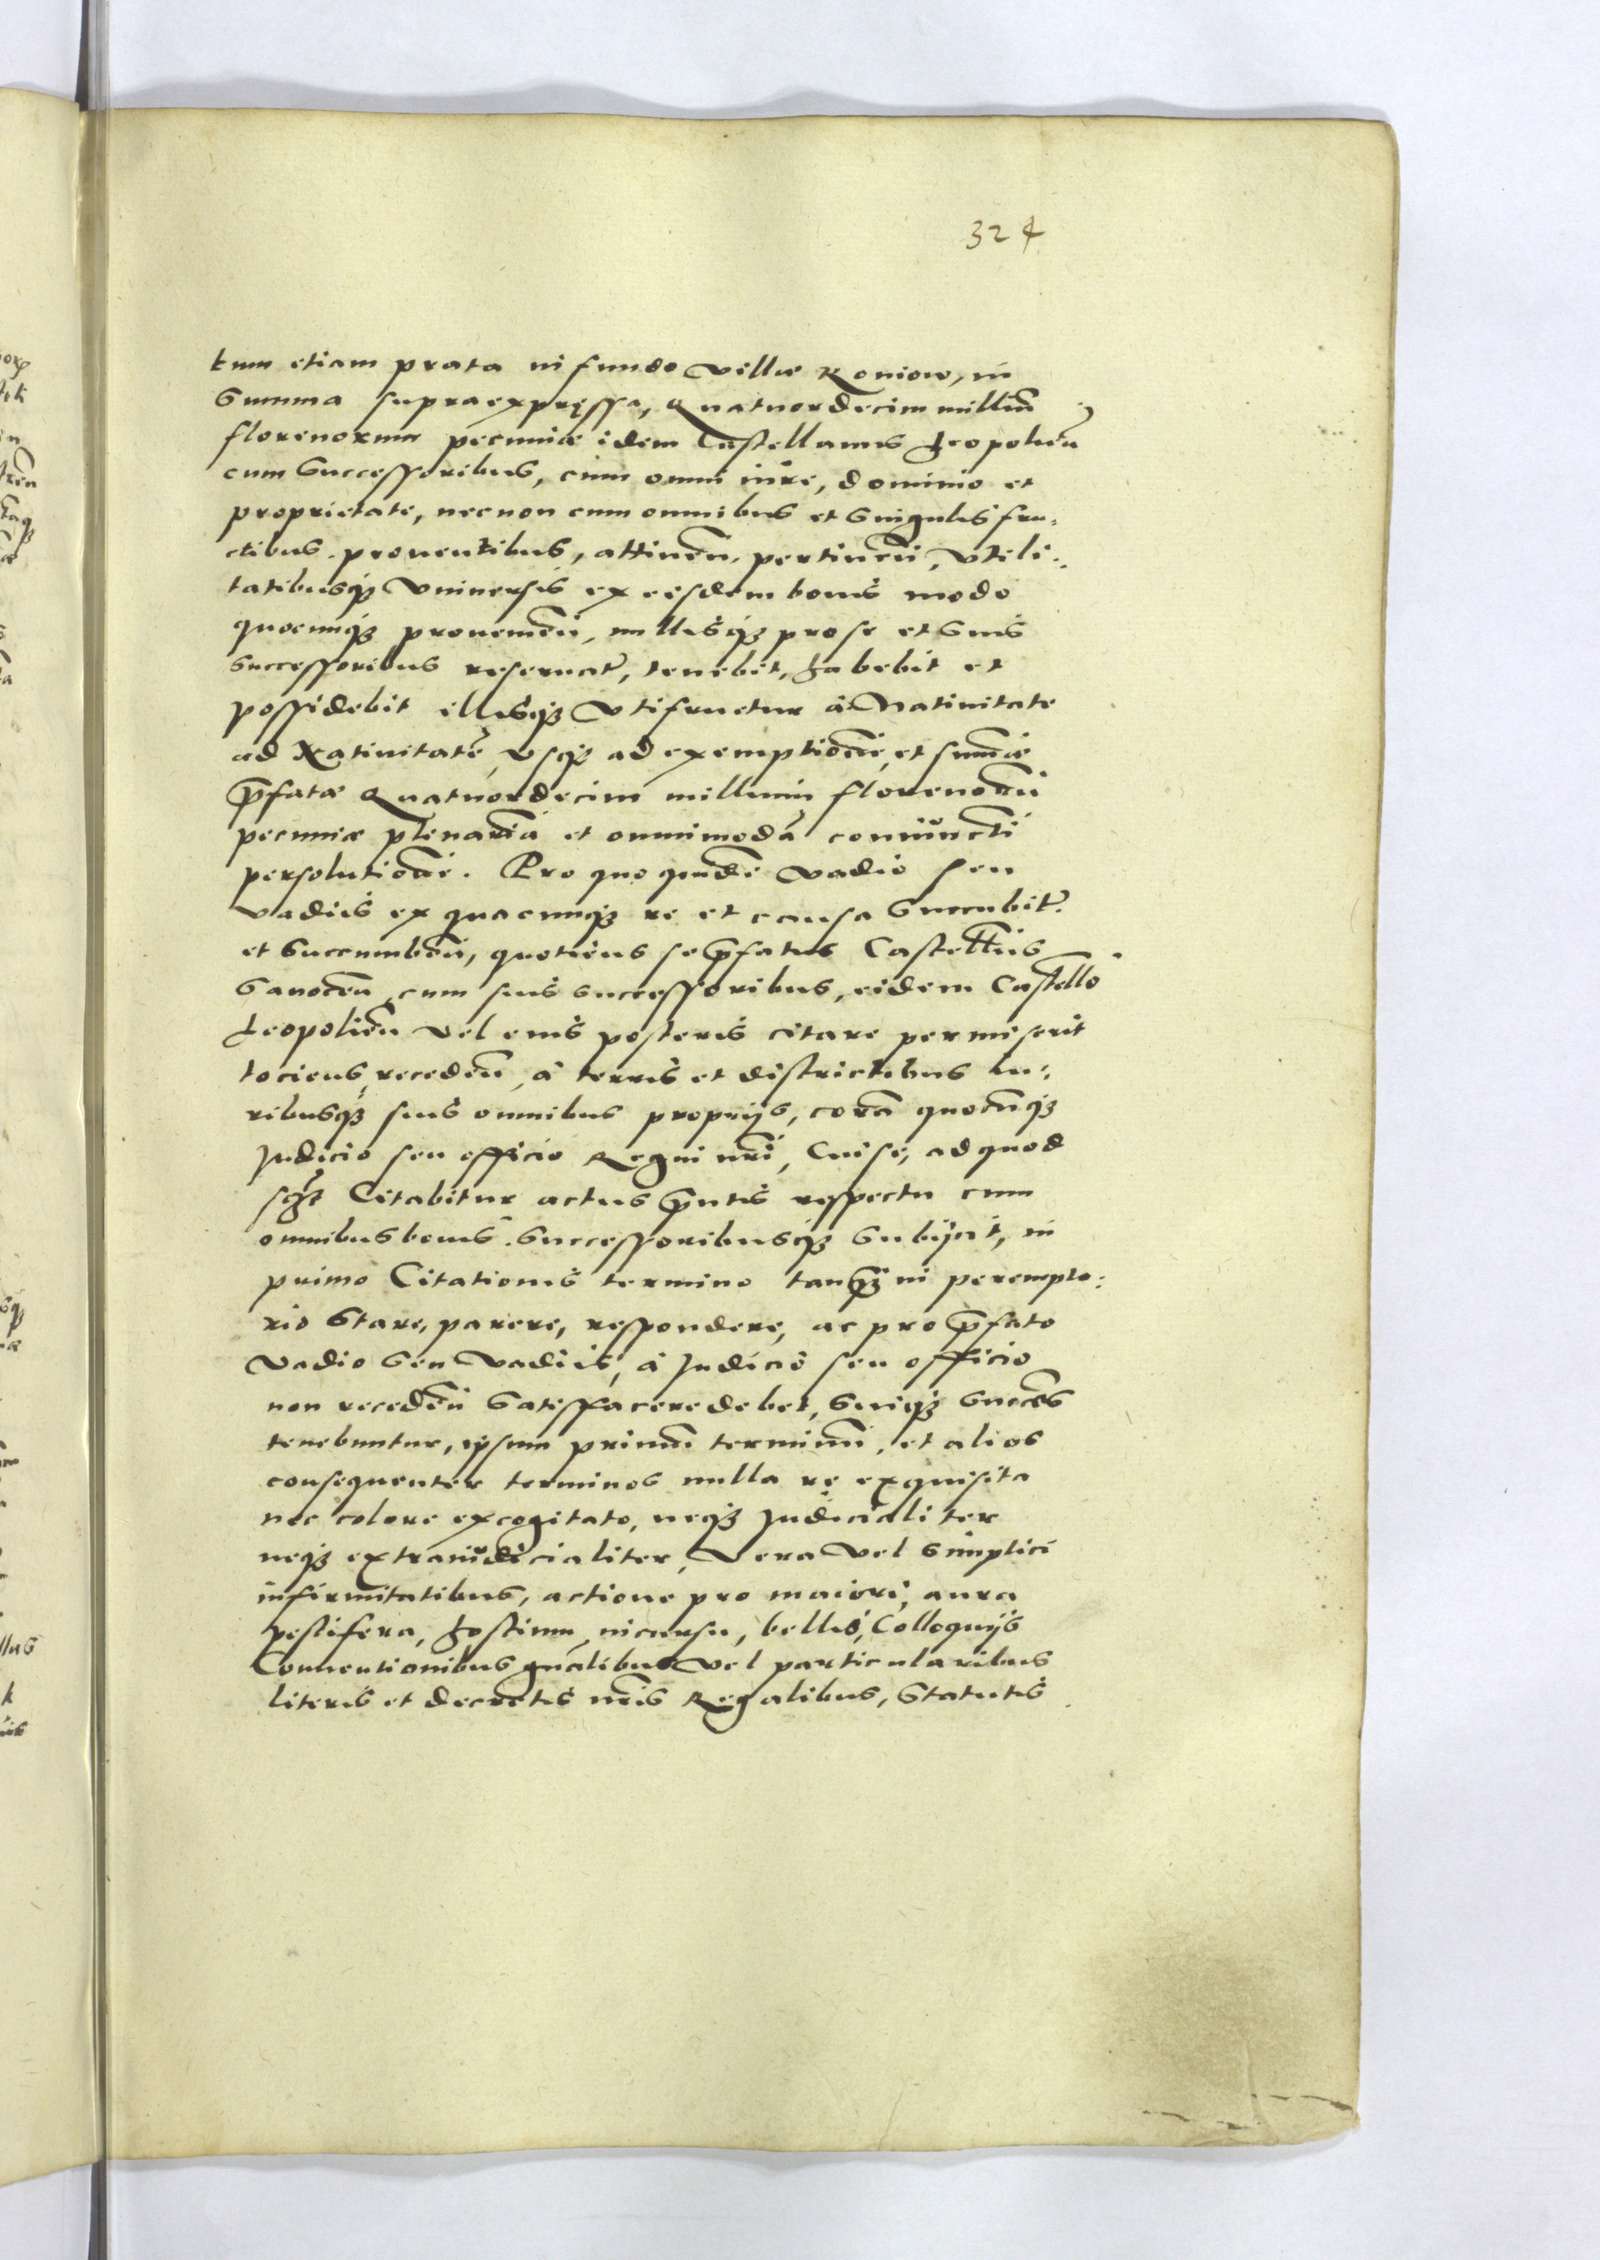 324
tum etiam prata in fundo villæ Koniow, in
summa supraexpręssa, Quatuordecim milliū
florenorum pecuniæ idem Castellanus Leopolień
cum successoribus, cum omni iure, dominio et
proprietate, necnon cum omnibus et singulis fru-
ctibus. prouentibus, attineń. pertineń, vtili-
tatibusq3 vniuersis ex eisdem bonis modo
quocunq3 prouenień, nullisq3 pro se et suis
successoribus reseruat~, tenebit, habebit et
possidebit illisq3 vtifruetur à Natiuitate
ad Natiuitatē, vsq3 ad exemptionē, et summæ
p̄fatæ Quatuordecim millium florenorū
pecuniæ plenariā et omnimodā coniunctī
persolutionē. Pro quo quidē vadio seu
vadiis ex quacunq3 re et causa succubit~.
et succumbeń, quotiens se p̄fatus Castellus̄
Sanoceń, cum suis successoribus, eidem Castello̅
Leopolień vel eius posteris citare permiserit
tociens, recedeń, à terris et districtibus Iu-
ribusq3 suis omnibus proprijs, corā quocūq3
Iudicio seu officio Regni nrī, Cui se, ad quod
Citabitur actus p̄ntis respectu cum
omnibus bonis. successoribusq3 subijcit, in
primo Citationis termino tanq3 in perempto-
rio stare, parere, respondere, ac pro p̄fato
vadio seu vadiis, à Iudicio seu officio
non recedeń satisfacere debet, suiq3 succēs
tenebuntur, ipsum primū terminū, et alios
consequenter terminos nulla re exquisita
nec colore excogitato, neq3 Iudicialiter
neq3 extraiudicialiter, vera vel simplici
infirmitatibus, actione pro maiori, aura
pestifera, hostium, incursu, bellis, Colloquijs
Conuentionibus gn̄alibus vel particularibus
literis et decretis nr̄is Regalibus, statutis